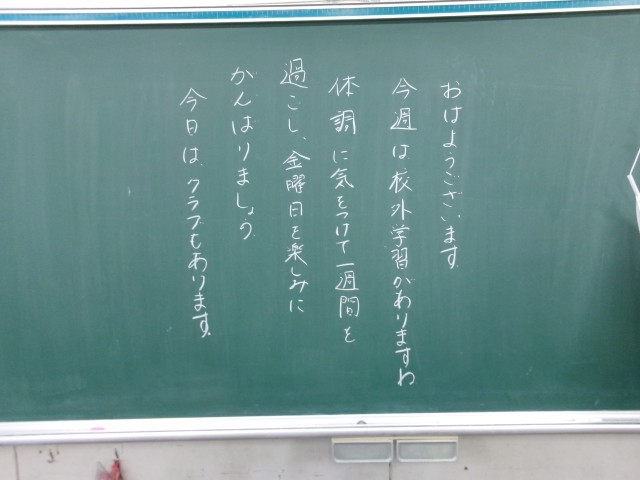 おはようございます。
今週は校外学習がありますね
体調に気をつけて一週間を
過ごし、金曜日を楽しみに
がんばりましょう。
今日は、クラブもあります。